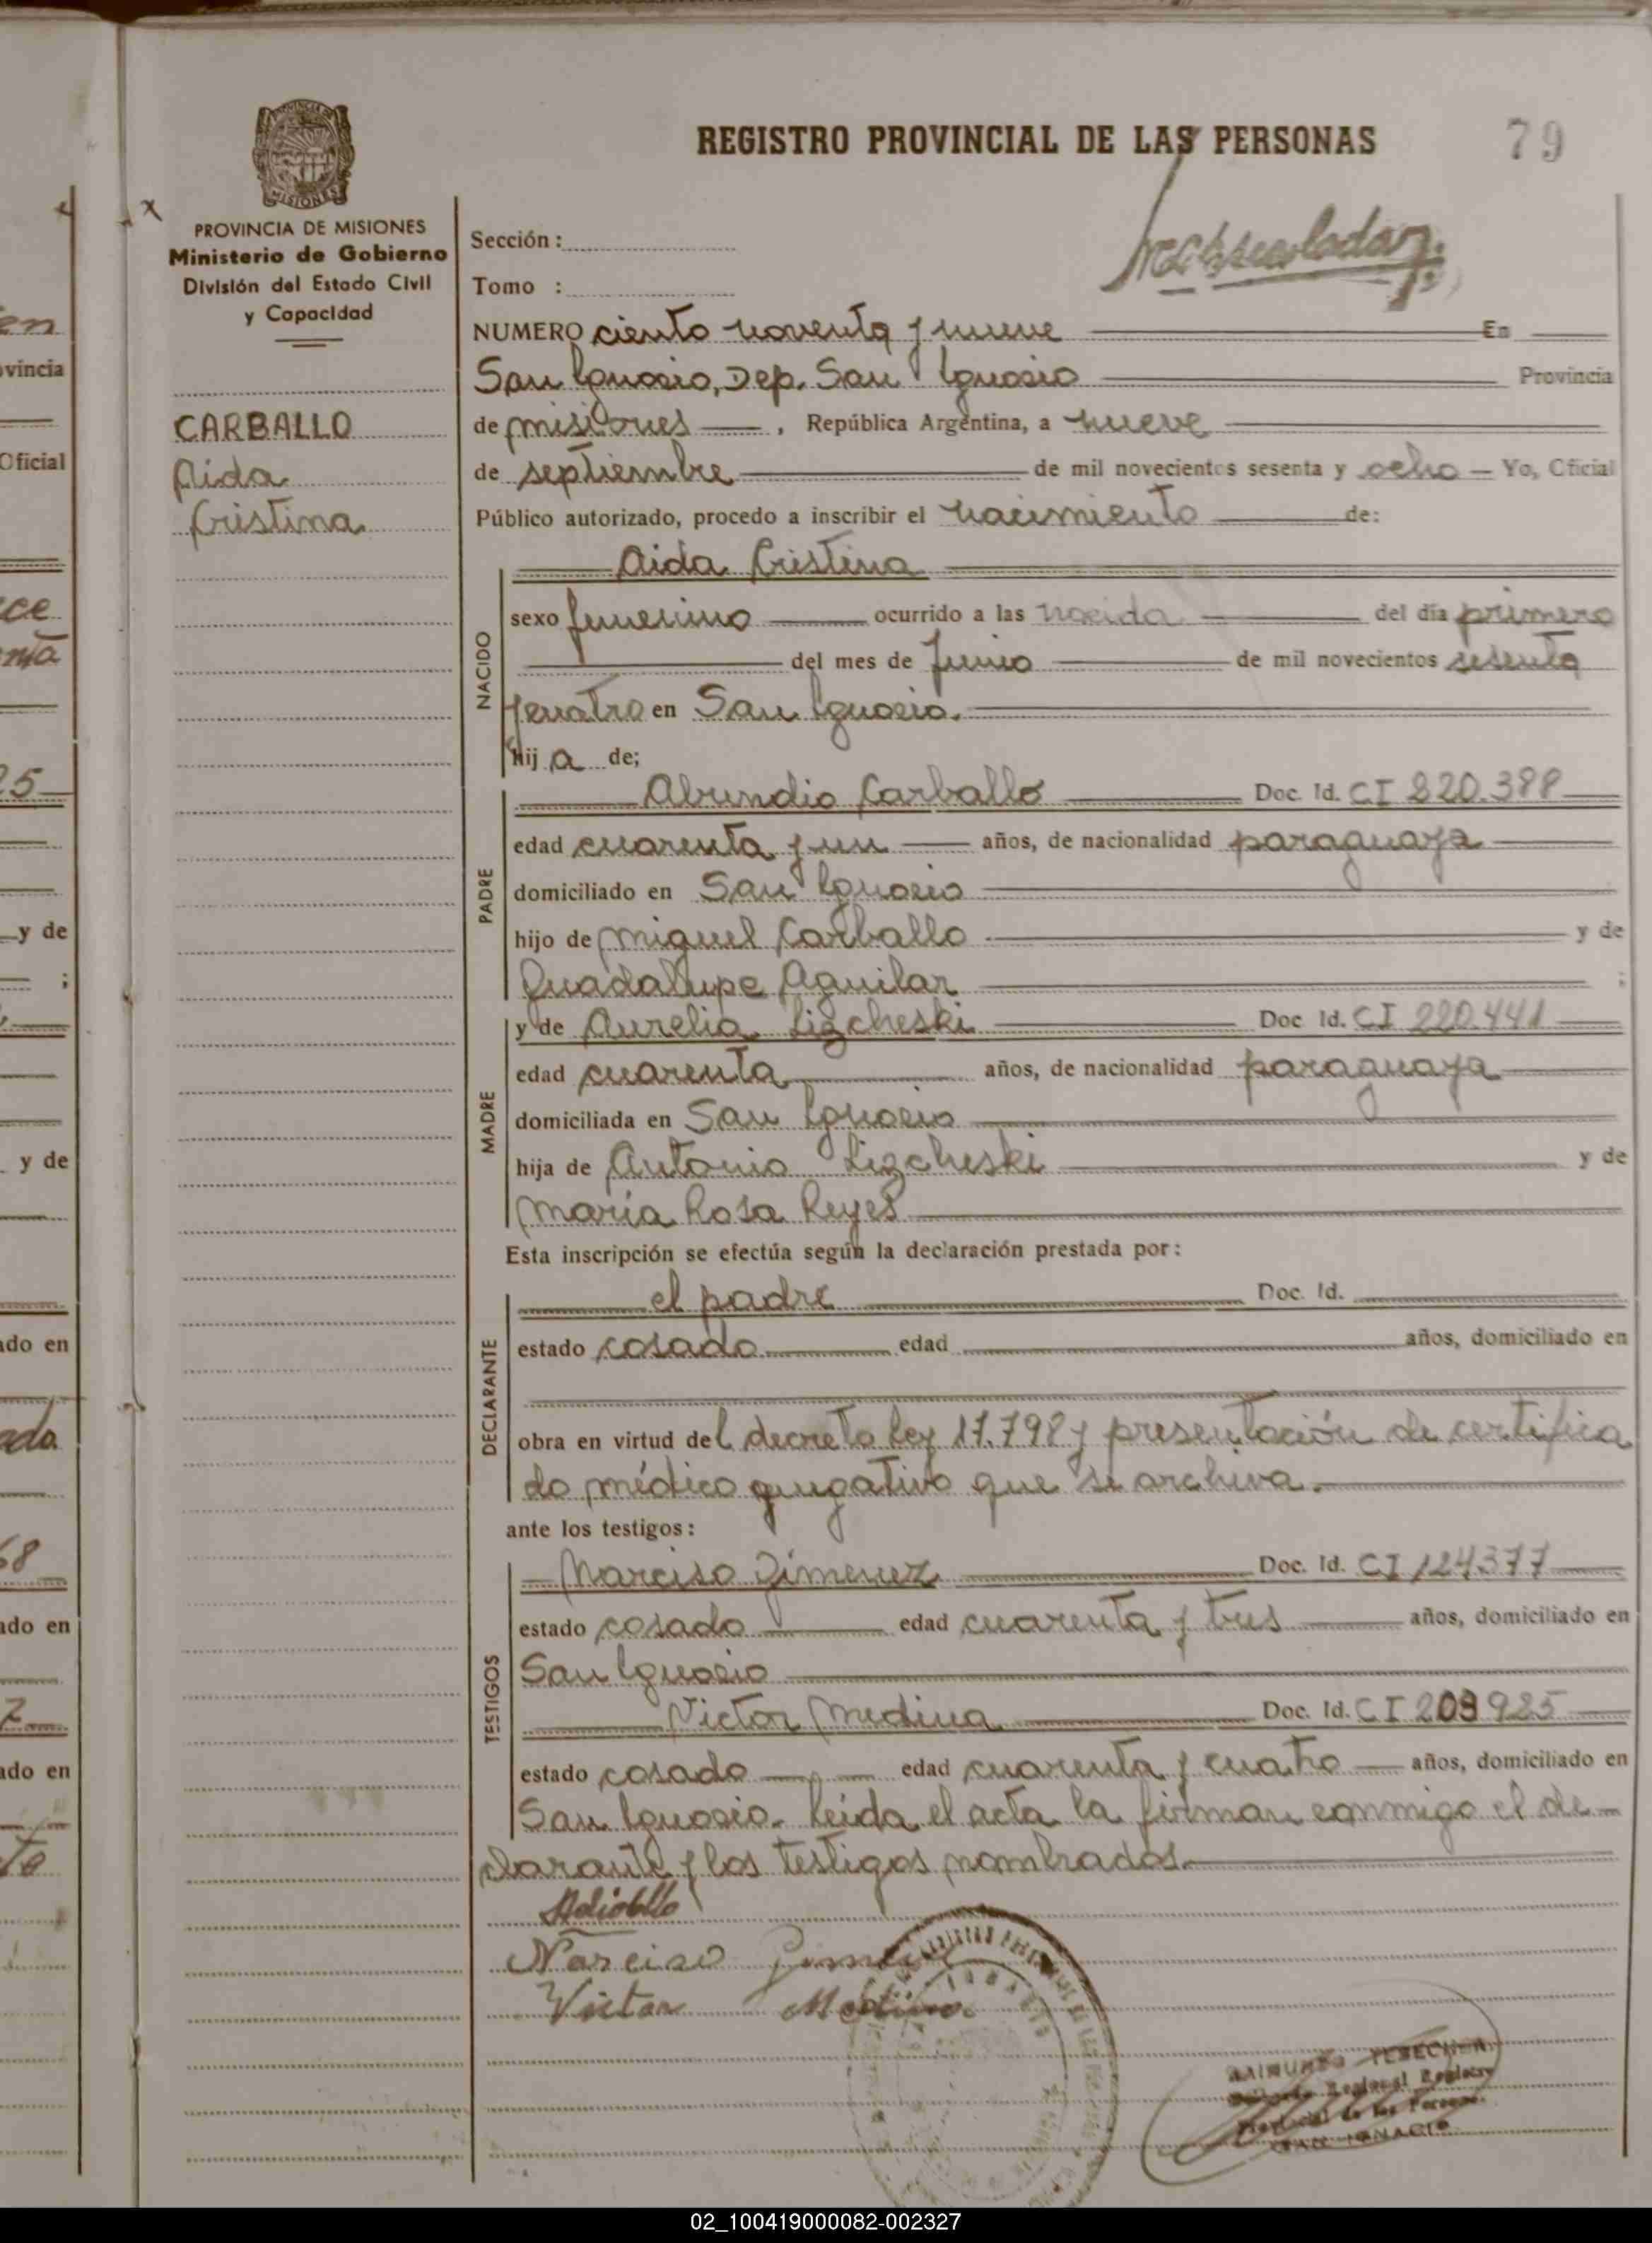 REGISTRO PROVINCIAL DE LAS PERSONAS
79
MISIONES
PROVINCIA DE MISIONES
Ministerio de Gobierno
División del Estado Civil
y Capacidad
CARBALLO
Aida
Cristina
Sección:
Tomo :
NUMERO ciento noventa y nueve En
San Ignacio, Dep. San Ignacio Provincia
de misiones, República Argentina, a nueve
de septiembre de mil novecientos sesenta y ocho Yo, Oficial
Público autorizado, procedo a inscribir el nacimiento de:
NACIDO
Aida Cristina
sexo femenino ocurrido a las nacida del día primero
del mes de Junio de mil novecientos sesenta
y cuatro en San Ignacio.
hij a de;
PADRE
Abundio Carballo Doc. Id. CI 220.388
edad cuarenta y un años, de nacionalidad paraguaya
domiciliado en San Ignacio
hijo de miguel Carballo y de
Guadalupe Aguilar ;
MADRE
y de Aurelia Lizcheski Doc Id. CI 220.441
edad cuarenta años, de nacionalidad paraguaya
domiciliada en San Ignacio
hija de Antonio Lizcheski y de
maría Rosa Reyes
Esta inscripción se efectúa según la declaración prestada por:
DECLARANTE
el padre Doc. Id.
estado casado edad años, domiciliado en
obra en virtud del decreto ley 17.798 y presentación de certifica
do médico que se archiva.
ante los testigos:
TESTIGOS
Narciso Jimenez Doc. Id. CI 124377
estado casado edad cuarenta y tres años, domiciliado en
San Ignacio
Victor Medina Doc. Id. CI 209985
estado casado edad cuarenta y cuatro años, domiciliado en
San Ignacio. Leída el acta la firman conmigo el de-
clarante y los testigos nombrados.
Narciso
Victor Medina
SAN IGNACIO
en
vincia
Oficial
ce
nta
25
y de
;
y de
ado en
ado
68
ado en
ado en
02_100419000082-002327